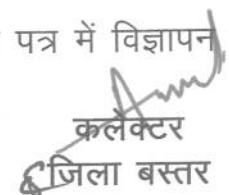 पत्र में विज्ञापन
कलेक्टर
जिला बस्तर